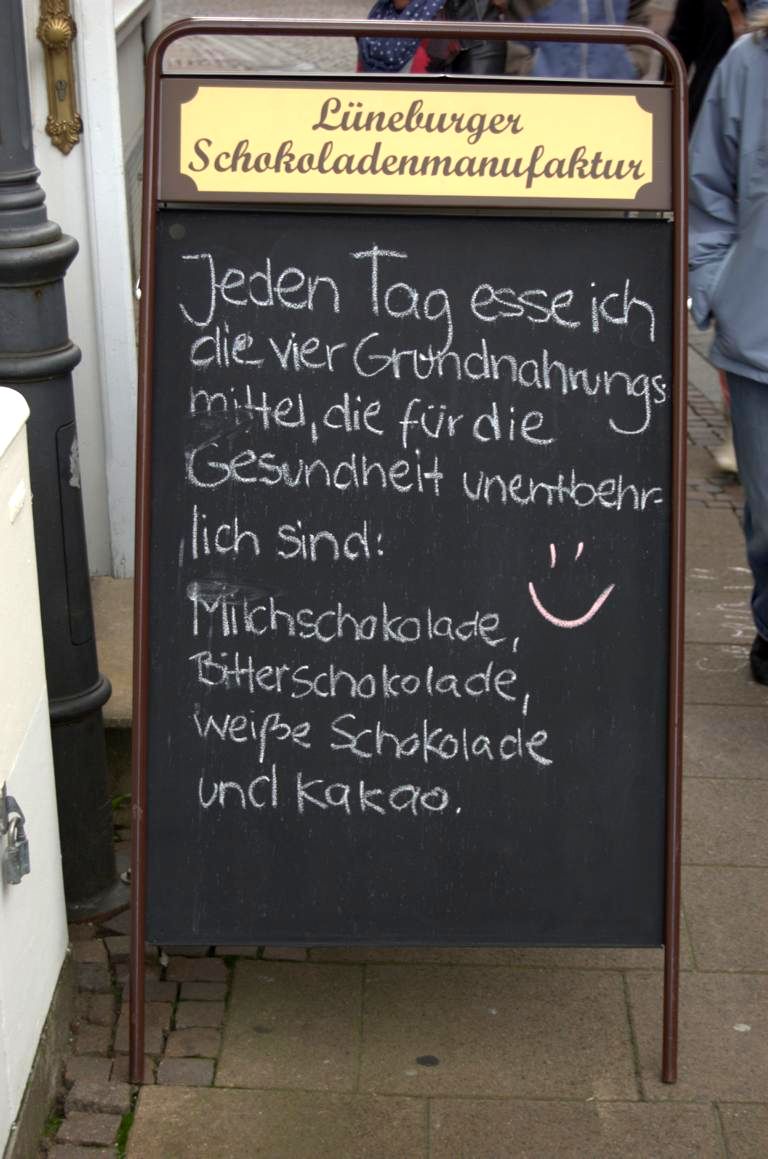 Lüneburger
Schokoladenmanufaktur
Jeden Tag esse ich
die vier Grundnahrungs-
mittel, die für die
Gesundheit unentbehr-
lich sind:
Milchschokolade,
Bitterschokolade,
weiße Schokolade
und Kakao.